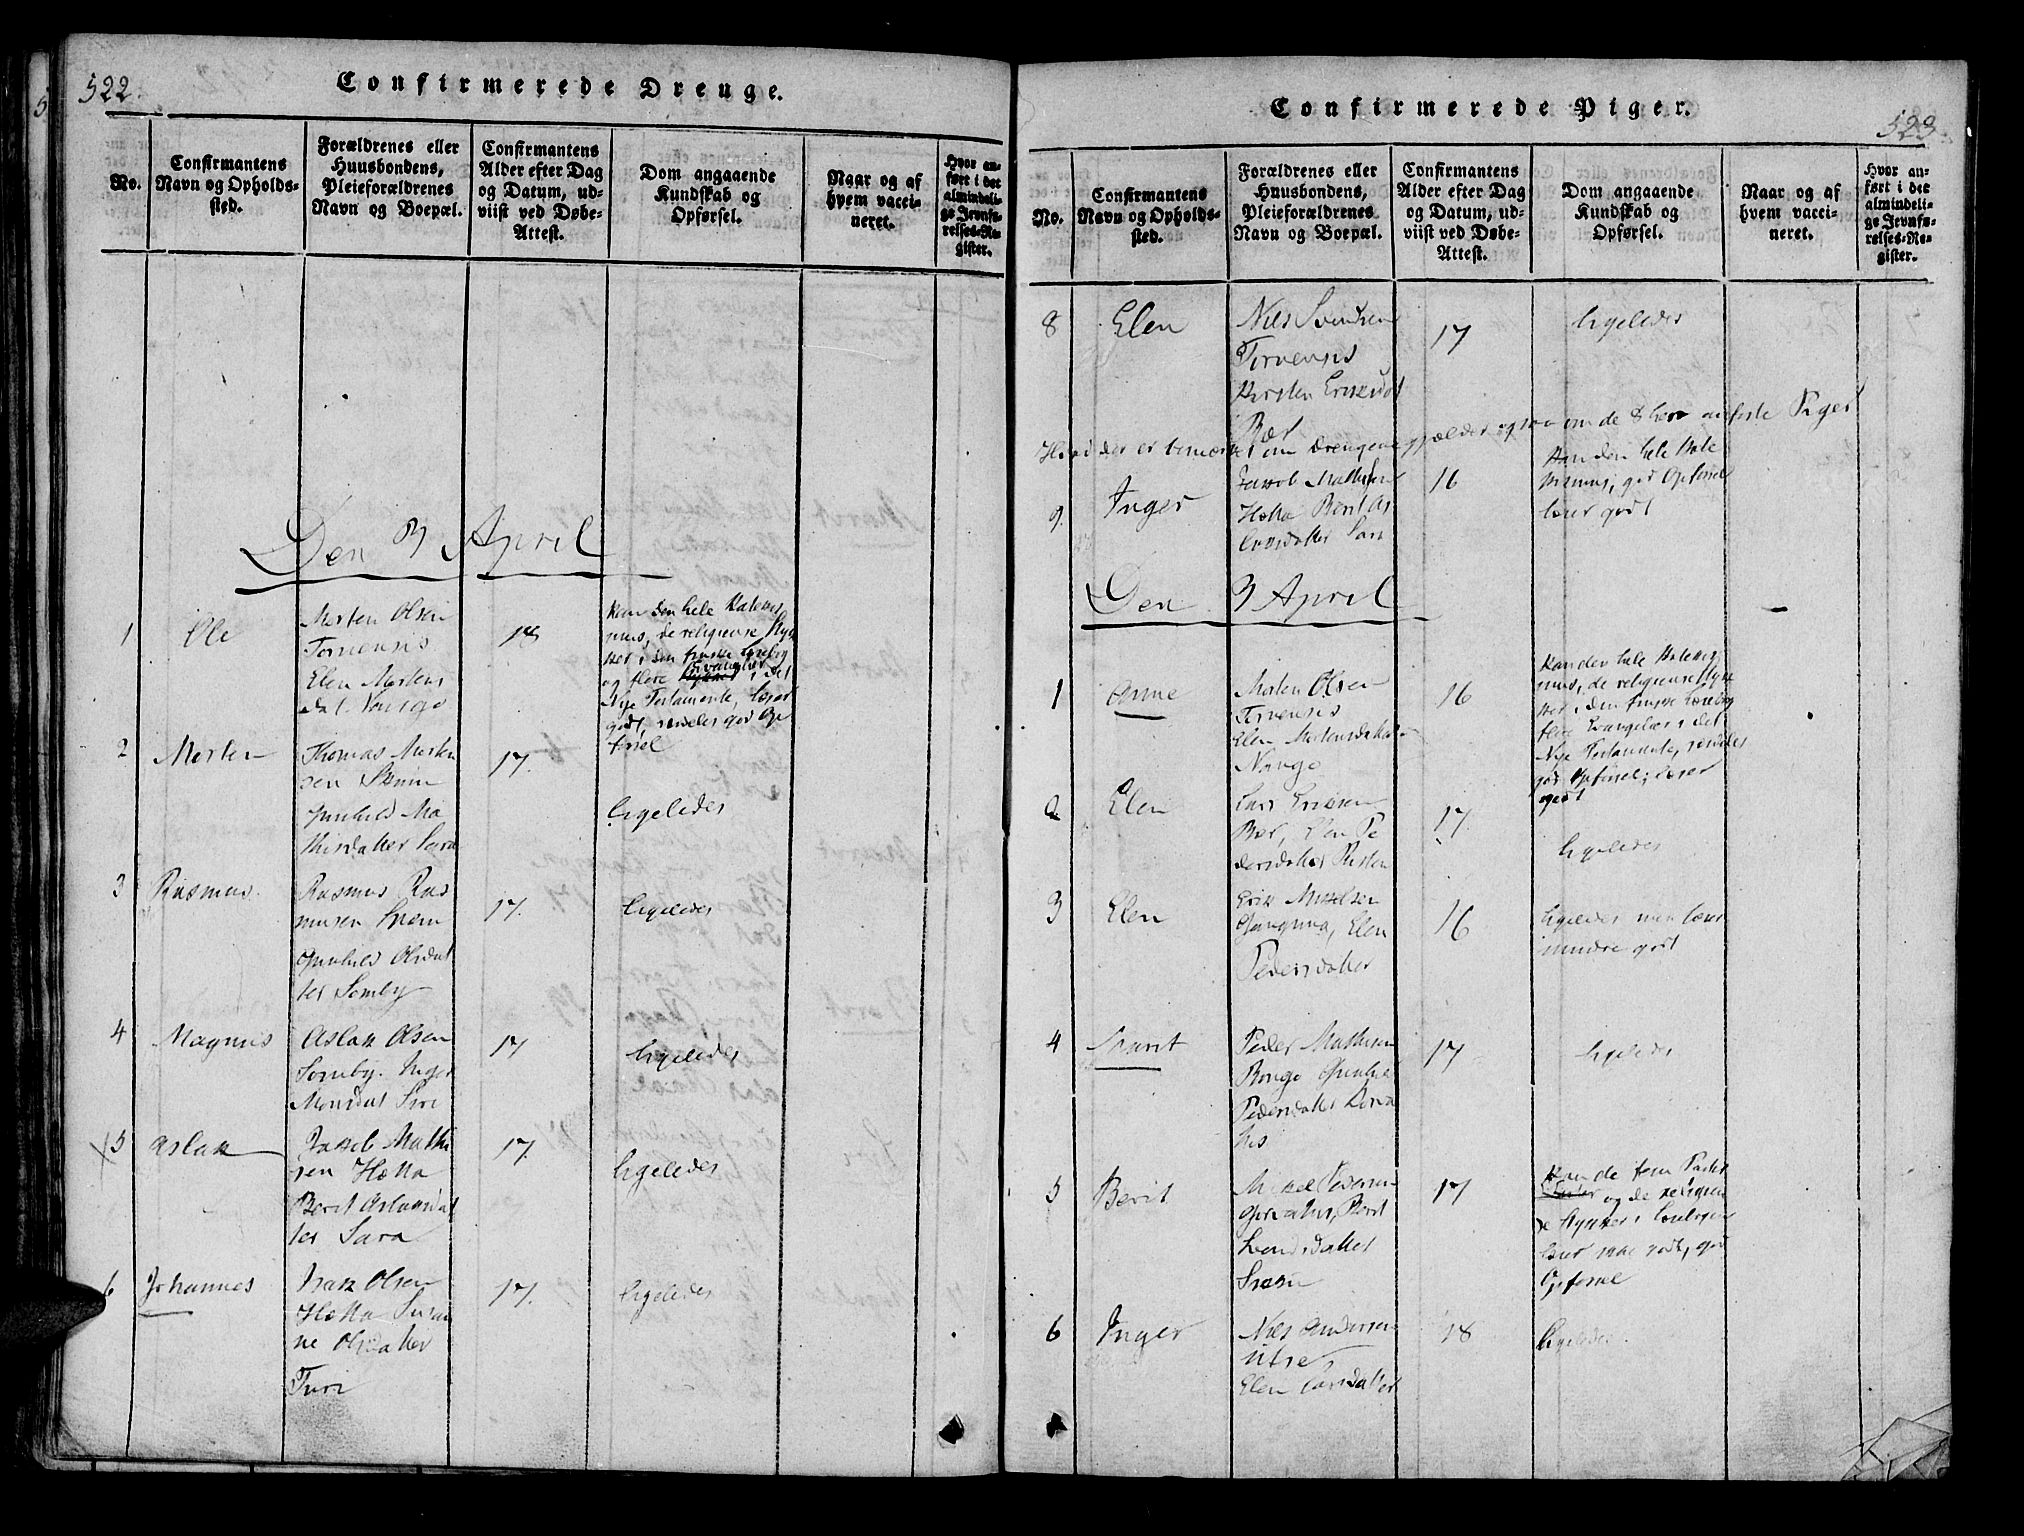 522.
Confirmerede Drenge.
No.
Confirmantens
Navn og Opholds-
sted.
Forældrenes eller
Huusbondens,
Pleieforældrenes
Navn og Boepæl.
Confirmantens
Alder efter Dag
og Datum, ud-
viist ved Døbe-
Attest.
Dom angaaende
Kundskab og
Opførsel.
Naar og af
hvem vacci-
neret.
Hvor an-
ført i det
almindeli-
ge Jevnfø-
relses-Re-
gister.
Den 3 April
1
Ole
Morten Olsen
Tornensis
Elen Mortens
dat. Nango
18
Kan den hele Katekis
mus, de religieuse Styk
ker i den
og flere Evangelier i det
Nye Testamente, læser
godt, særdeles god Op
førsel
2
Morten
Thomas Morten
sen
Gunhild Ma
thisdatter Sara
17.
ligeledes
3
Rasmus.
Rasmus Ras
musen Spein
Gunhild Olsdat
ter Somby
17.
ligeledes
4
Magnus
Aslak Olsen
Somby. Inger
Monsdat Siri
17
ligeledes
5
Aslak
Mathi
sen Hætta
Berit Aslaksdat
ter Sara
17.
ligeledes
6
Johannes
Isak Olsen
Hætta Susan
ne Olsdatter
Turi
17.
ligeledes
Confirmerede Piger.
523.
No.
Confirmantens
Navn og Opholds-
sted.
Forældrenes eller
Huusbondens,
Pleieforældrenes
Navn og Boepæl.
Confirmantens
Alder efter Dag
og Datum, ud-
viist ved Døbe-
Attest.
Dom angaaende
Kundskab og
Opførsel.
Naar og af
hvem vacci-
neret.
Hvor an-
ført i det
almindeli-
ge Jevnfø-
relses-Re-
gister.
8
Elen
Niels Svendsen
Tornensis
Kirsten Eriksdat
Bær
17
ligeledes
Hvad der er bemærket om Drengene gjælder ogsaa om de 8 her anførte Piger
9.
Inger
Jacob Mathisen
Hætta Berit As
laksdatter Sara
16
Kan den hele Kate
kismus, god Opførsel
læser godt
Den 3 April
1
Anne
Morten Olsen
Tornensis
Elen Mortensdatter
Nango
16
Kan den hele Katekis
mus, de religieuse Styk
ker i den
flere Evangelier i det
Nye Testamente, særdeles
god Opførsel; læser
godt
2
Elen
Lars Eriksen
Bær, Elen Pe
dersdatter
17
ligeledes
3
Elen
Erik Mikkelsen
Elen
Pedersdatter
16
ligeledes men læser
mindre godt
4
Marit
Peder Mathisen
Bongo Gunhil
Pedersdatter
17
ligeledes
5
Berit
Mikkel Pedersen
Berit
Svendsdatter
17
Kan de fem Parter
og de religieu
se Stykker i Lærebogen
læser godt, god
Opførsel
6
Inger
Niels Andersen
Utse
Elen Larsdatter
18
ligeledes.